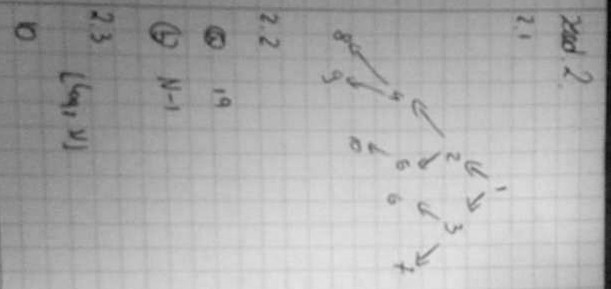 zad. 2.
2.1
1
2 3
4 5 6 7
8 9 10
2.2
a 19
b N-1
2.3
⌊log₂ N⌋
10